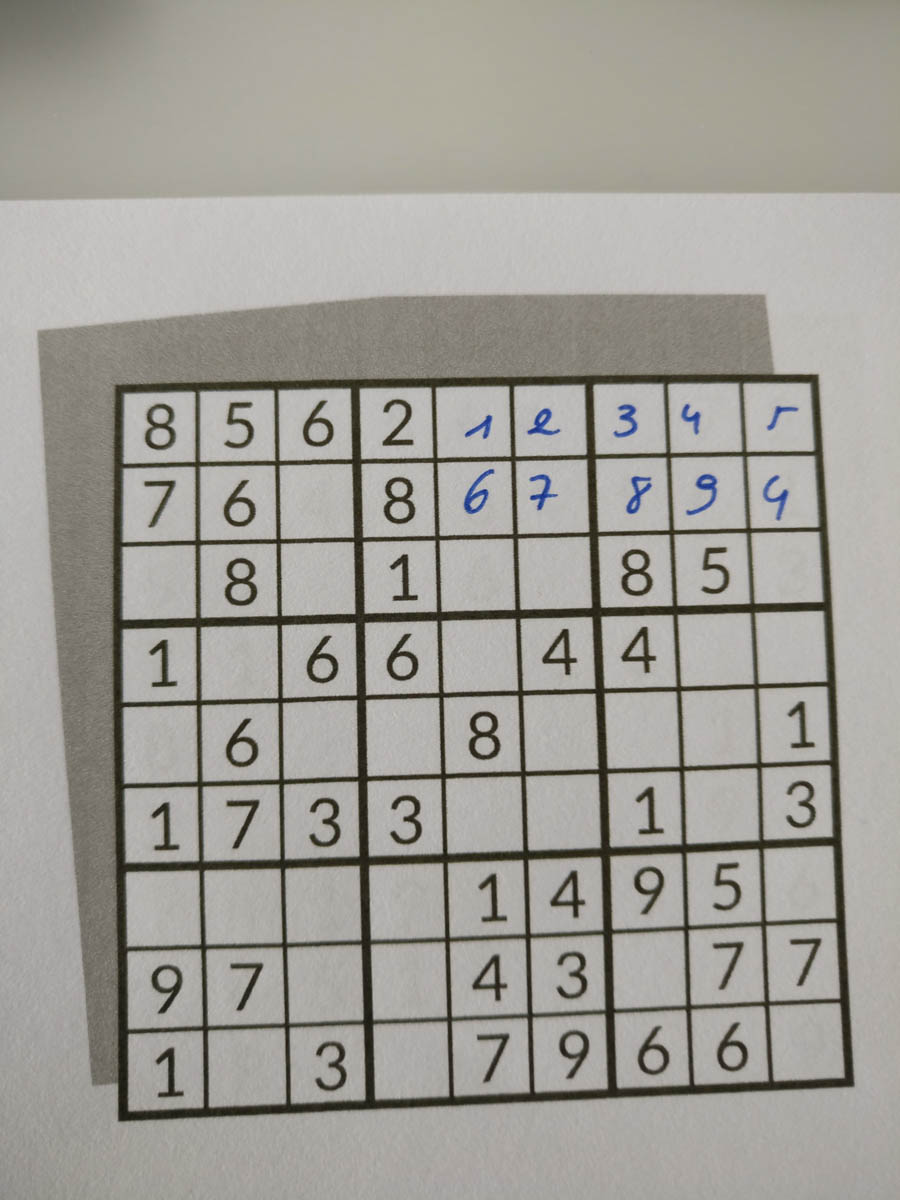 8 5 6 2 1 2 3 4 5
7 6 8 6 7 8 9 4
8 1 8 5
1 6 6 4 4
6 8 1
1 7 3 3 1 3
1 4 9 5
9 7 4 3 7 7
1 3 7 9 6 6